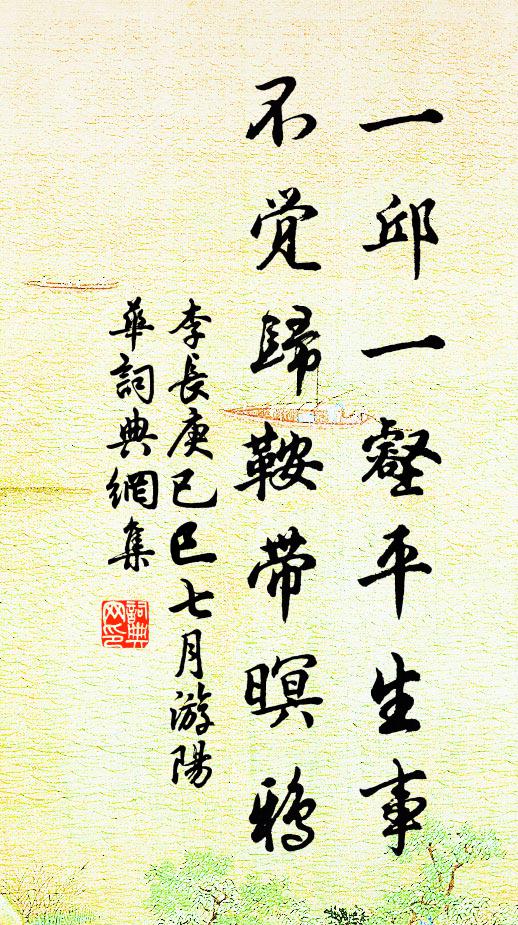 一邱一壑平生事
不觉歸鞍带暝鸦
李長庚己巳七月游陽
華詞典網集
詞典
网印